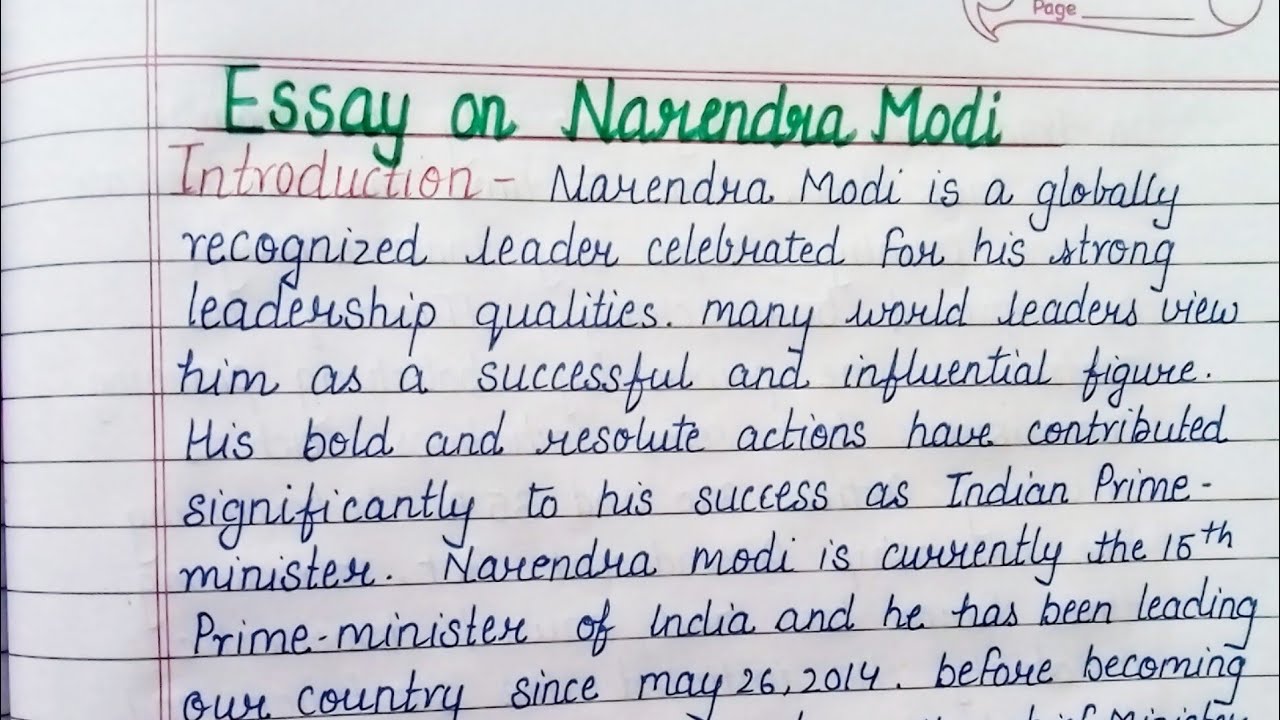 Page
Essay on Narendra Modi
Introduction - Narendra Modi is a globally
recognized leader celebrated for his strong
leadership qualities. many world leaders view
him as a successful and influential figure.
His bold and resolute actions have contributed
significantly to his success as Indian Prime-
minister. Narendra modi is currently the 15th
Prime-minister of India and he has been leading
our country since may 26, 2014. before becoming
Minister